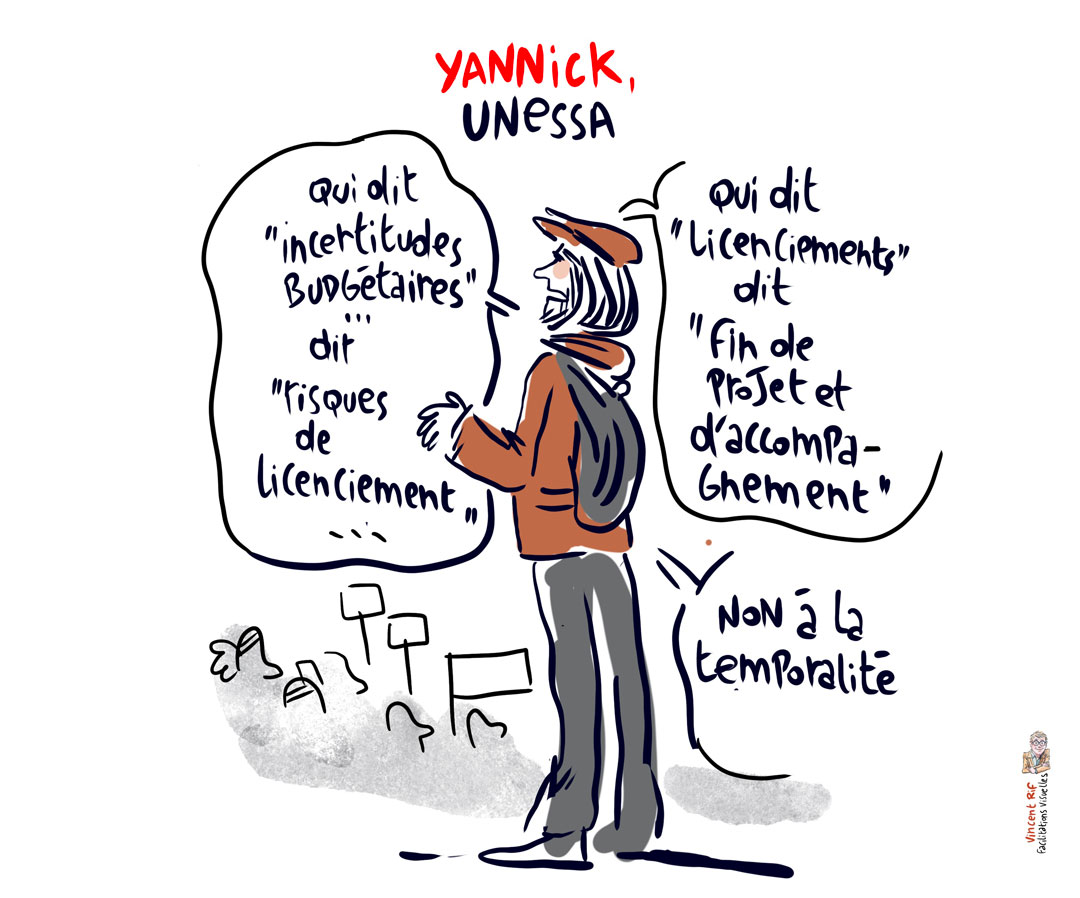 YANNiCK,
UNeSSA
Qui dit
"incertitudes
BUDGétaires"
...
dit
"risques
de
licenciement"
...
Qui dit
"Licenciements"
dit
"Fin de
ProJet et
d'accompa-
Gnement"
NON à la
temporalité
Vincent Rif
Facilitations Visuelles